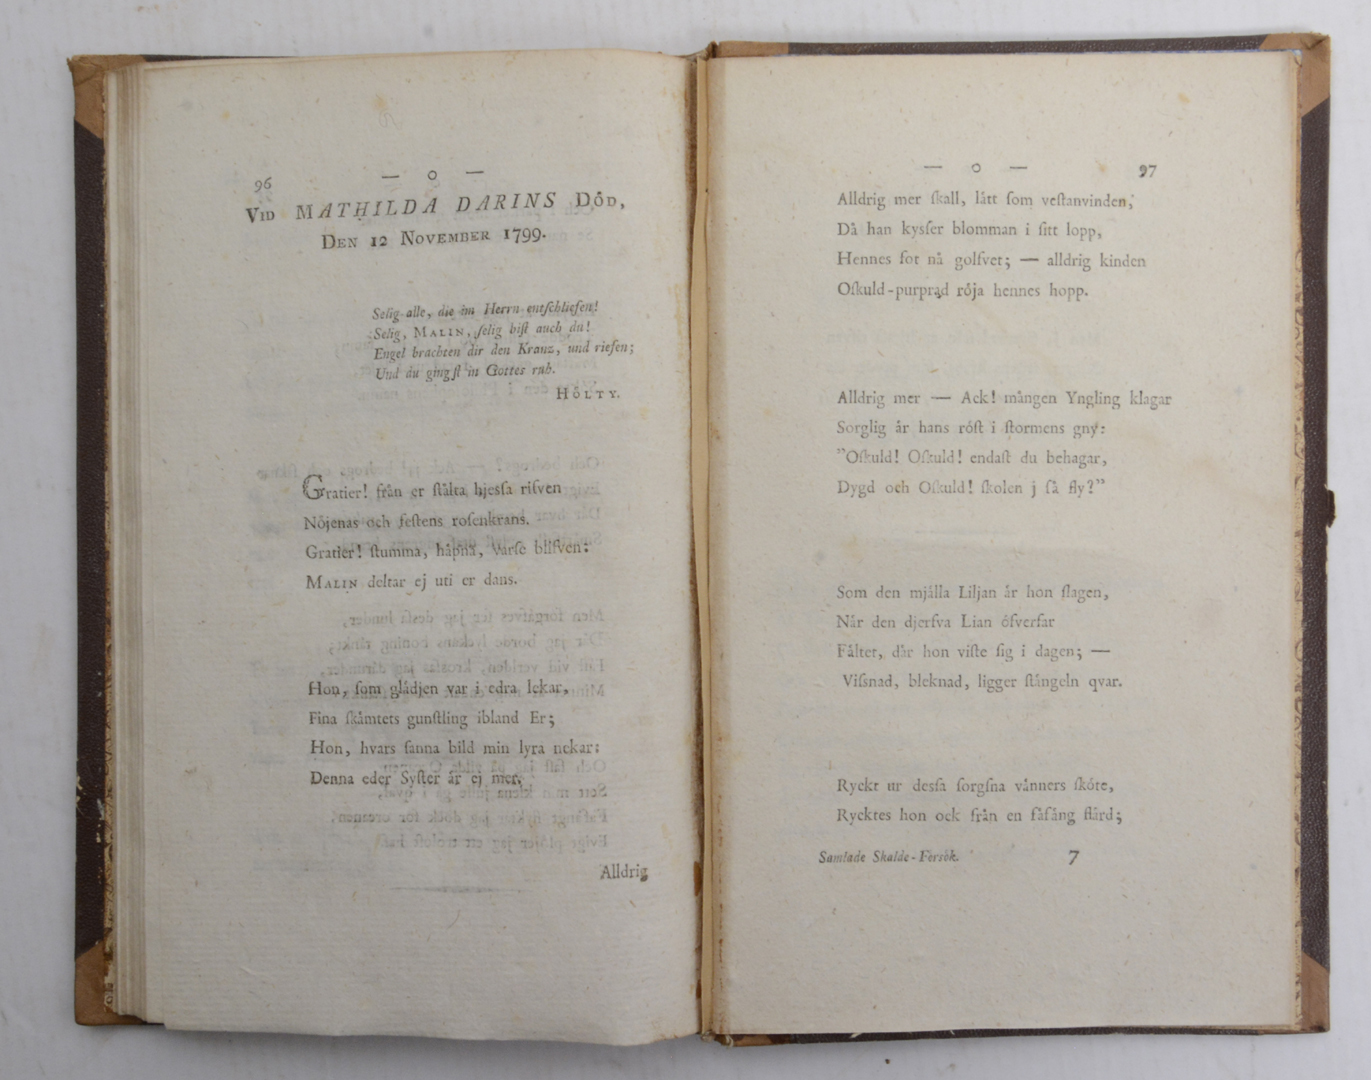 96
— o —
VID MATHILDA DARINS DÖD,
DEN 12 NOVEMBER 1799.
Selig alle, die im Herrn entſchliefen!
Selig, MALIN, ſelig biſt auch du!
Engel brachten dir den Kranz, und riefen;
Und du gingſt in Gottes ruh.
HÖLTY.
Gratier! från er ſtålta hjeſſa riſven
Nöjenas och feſtens roſenkrans.
Gratier! ſtumma, häpna, varſe bliſven:
MALIN deltar ej uti er dans.
Hon, ſom glädjen var i edra lekar,
Fina ſkämtets gunſtling ibland Er;
Hon, hvars ſanna bild min lyra nekar:
Denna eder Syſter är ej mer.
Alldrig
— o —
97
Alldrig mer ſkall, lätt ſom veſtanvinden,
Då han kysſer blomman i ſitt lopp,
Hennes fot nå golfvet; — alldrig kinden
Oſkuld-purprad röja hennes hopp.
Alldrig mer — Ack! mången Yngling klagar
Sorglig är hans röſt i ſtormens gny:
”Oſkuld! Oſkuld! endaſt du behagar,
Dygd och Oſkuld! ſkolen j ſå fly?”
Som den mjälla Liljan är hon ſlagen,
När den djerfva Lian öfverfar
Fältet, där hon viſte ſig i dagen; —
Viſsnad, bleknad, ligger ſtängeln qvar.
Ryckt ur desſa ſorgſna vänners ſköte,
Rycktes hon ock från en fåfäng flärd;
Samlade Skalde-Försök.
7